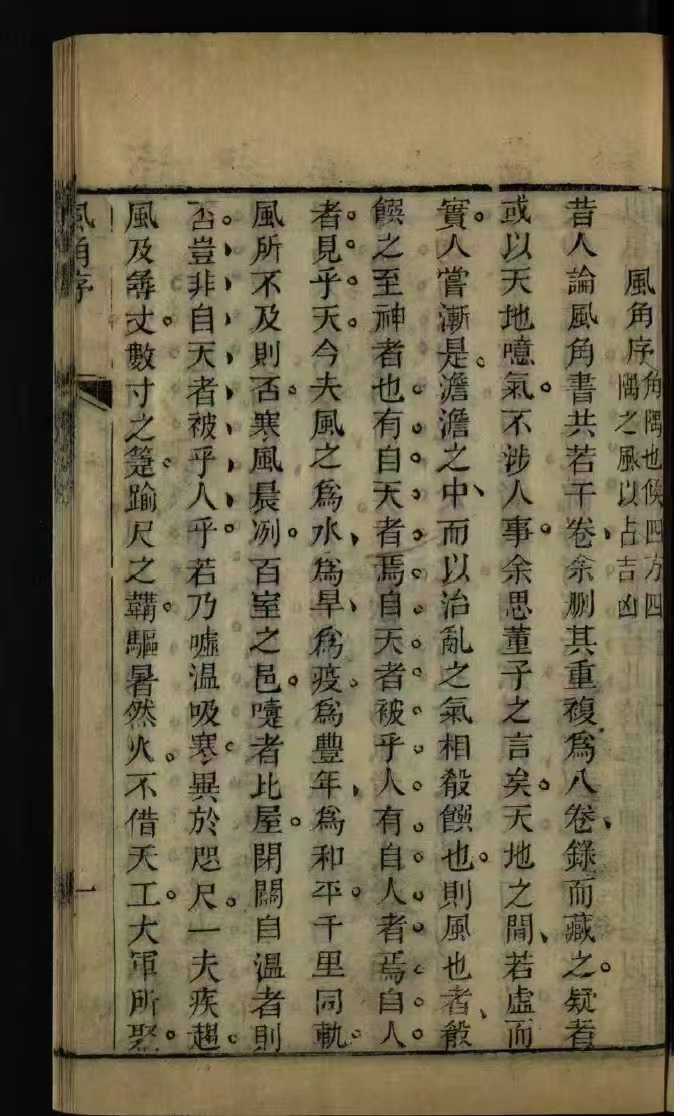 風角序 角隅也候四方四
隅之風以占吉凶
昔人論風角書共若干卷余刪其重複爲八卷錄而藏之疑者
或以天地噫氣不涉人事余思董子之言矣天地之間若虛而
實人嘗漸是澹澹之中而以治亂之氣相殽饌也則風也者殽
饌之至神者也有自天者焉自天者被乎人有自人者焉自人
者見乎天今夫風之爲水爲旱爲疫爲豐年爲和平千里同軌
風所不及則否寒風晨冽百室之邑嚏者比屋閉闗自溫者則
否豈非自天者被乎人乎若乃噓溫吸寒異於咫尺一夫疾趨
風及尋丈數寸之箑踰尺之鞲驅暑然火不借天工大軍所聚
風角序
一